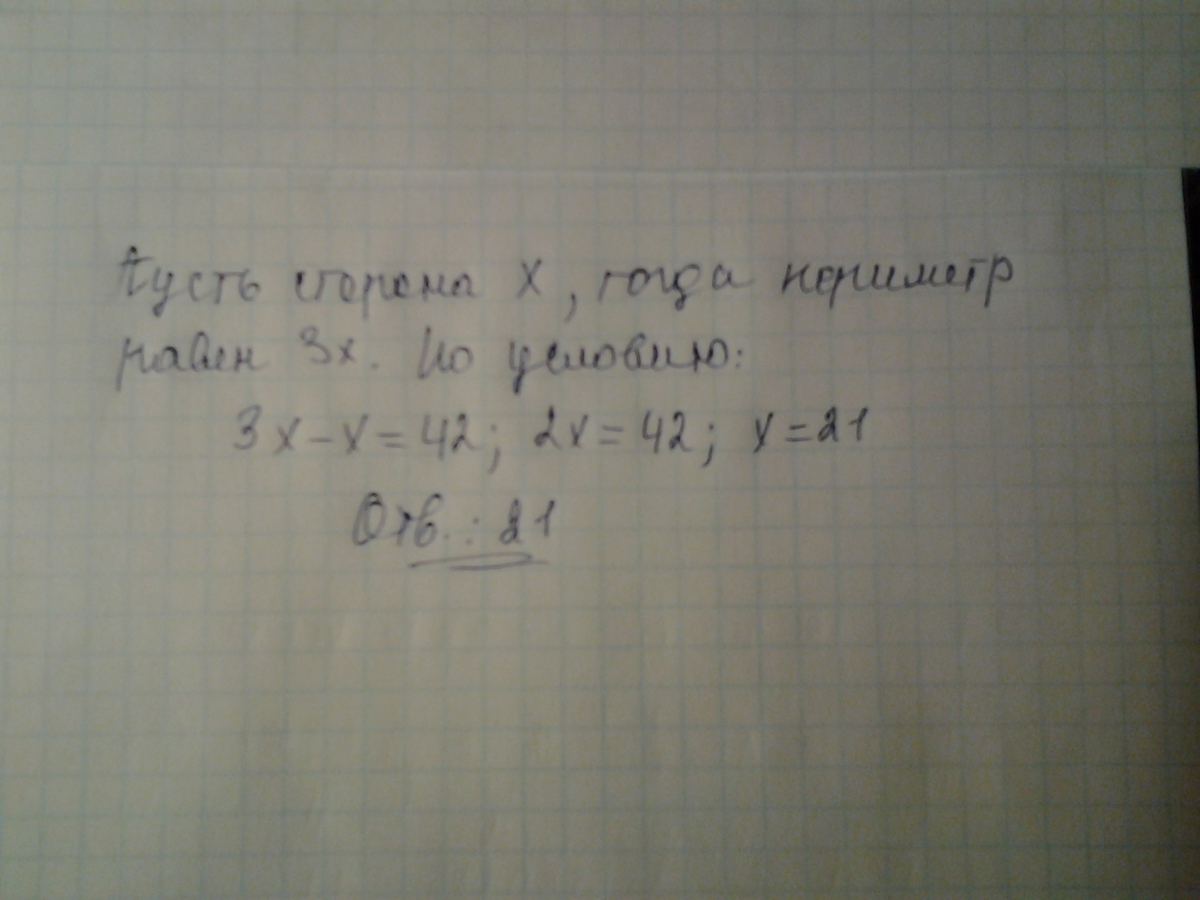 Пусть сторона x, тогда периметр
равен 3x. По условию:
3x-x=42; 2x=42; x=21
Отв.: 21